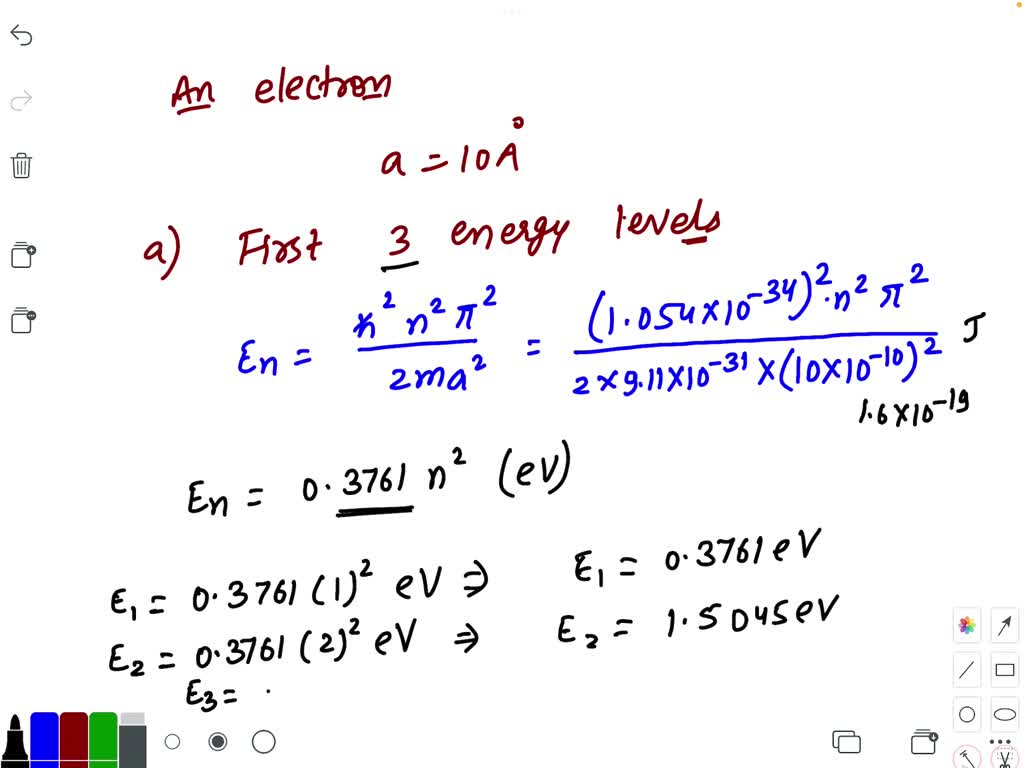 An electron
a = 10Å
a) First 3 energy levels
En = ℏ² n² π² / 2ma² = (1.054×10⁻³⁴)² · n² π² / 2×9.11×10⁻³¹ × (10×10⁻¹⁰)² J
1.6×10⁻¹⁹
En = 0.3761 n² (eV)
E₁ = 0.3761 (1)² eV ⇒ E₁ = 0.3761 eV
E₂ = 0.3761 (2)² eV ⇒ E₂ = 1.5045 eV
E₃ = .